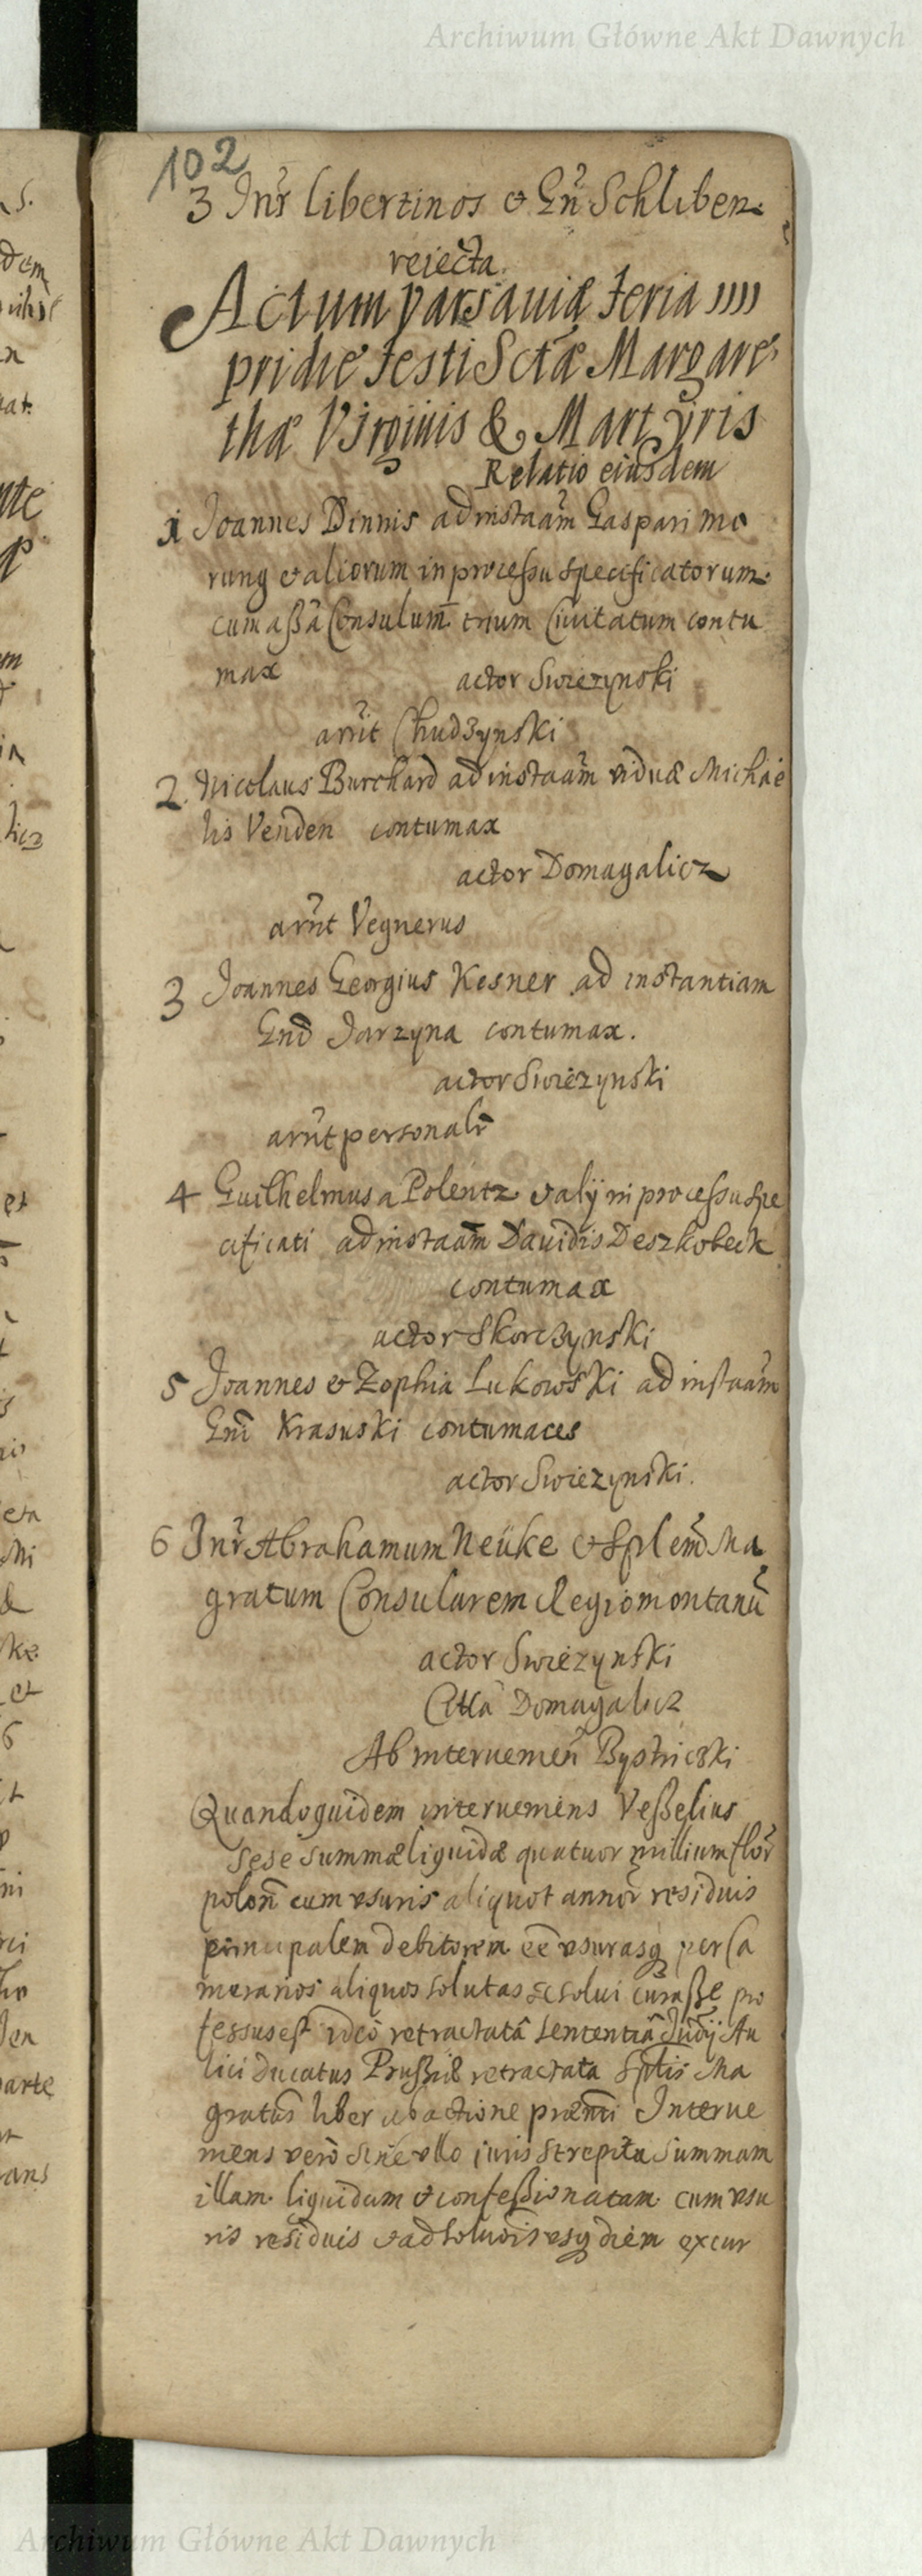 Archiwum Główne Akt Dawnych
102
3 Inr̃ libertinos & Gñ Schliben
reiecta.
Actum Varsauiæ feria IIII
pridie festi Sctæ Margare
thæ Virginis & Martyris
Relatio eiusdem
1 Joannes Dinnis ad instaãm Gaspari mo
rung & aliorum in processu specificatorum
cum assã Consulum trium Ciuitatum contu
max actor Swiezynski
arr̃it Chudzynski
2. Nicolaus Burchard ad instaãm viduæ Michaë
lis Venden contumax
actor Domagalicz
arr̃it Vegnerus
3 Joannes Georgius Kesner ad instantiam
Gnd̃ Jarzyna contumax.
actor Swiezynski
arr̃it personalr̃
4 Guilhelmus a Polentz & alij in processu spe
cificati ad instaãm Dauidis Deszkobeck
contumax
actor Skorczynski
5 Joannes & Zophia Lukowski ad instaãm
Gnĩ Krasuski contumaces
actor Swiezynski.
6 Inr̃ Abrahamum Neüke & Splem̃ Ma
gratum Consularem Regiomontanũ
actor Swiezynski
Domagalicz
Ab interuenieñ Bystriczki
Quandoquidem interueniens Vesselius
sese summæ liquidæ quatuor millium flor̃
poloñ cum vsuris aliquot annor̃ residuis
principalem debitorem eẽ vsurasq per Ca
merarios aliquos solutas se solui curasse pro
fessus est ideo retractatâ sententiâ Judÿ Au
lici Ducatus Prussiæ retractata Splis Ma
gratus liber ab actione præñti Interue
niens vero sine vllo iuris strepitu summam
illam liquidam & confessionatam cum vsu
ris residuis & ad solu͠dis vsq diem excur
Archiwum Główne Akt Dawnych